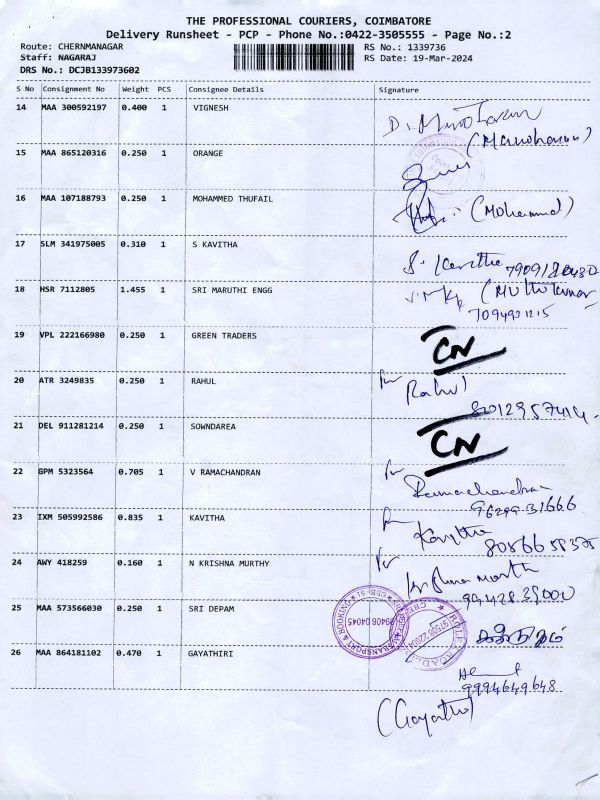 THE PROFESSIONAL COURIERS, COIMBATORE
Delivery Runsheet - PCP - Phone No.:0422-3505555 - Page No.:2
Route: CHERNMANAGAR RS No.: 1339736
Staff: NAGARAJ RS Date: 19-Mar-2024
DRS No.: DCJB133973602
S No Consignment No Weight PCS Consignee Details Signature
14 MAA 300592197 0.400 1 VIGNESH
(Manoharan)
15 MAA 865120316 0.250 1 ORANGE
16 MAA 107188793 0.250 1 MOHAMMED THUFAIL (Mohammed)
17 SLM 341975005 0.310 1 S KAVITHA
S. Kavitha
18 HSR 7112805 1.455 1 SRI MARUTHI ENGG (Muthukumar
7094931215
19 VPL 222166980 0.250 1 GREEN TRADERS CN
20 ATR 3249835 0.250 1 RAHUL Rahul
8012957414
21 DEL 911281214 0.250 1 SOWNDAREA CN
22 GPM 5323564 0.705 1 V RAMACHANDRAN
Ramachandran
96299 31666
23 IXM 505992586 0.835 1 KAVITHA Kavitha
8056658375
24 AWY 418259 0.160 1 N KRISHNA MURTHY Krishna murth
99428 39000
25 MAA 573566030 0.250 1 SRI DEPAM
26 MAA 864181102 0.470 1 GAYATHIRI
9994649648
(Gayathri)